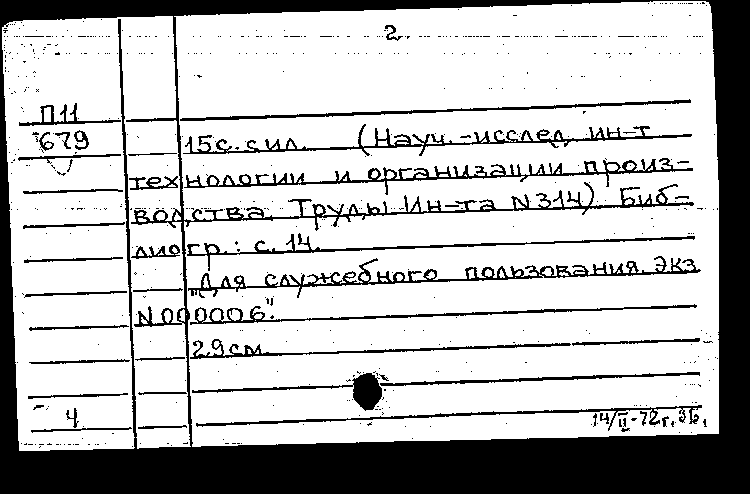 2.
П11
679
15 с. с ил. (Науч.-исслед. ин-т
технологии и организации произ-
водства. Труды Ин-та N314) Биб-
лиогр.: с. 14.
"Для служебного пользования. Экз
N000006".
29 см.
4
14/II-72г.